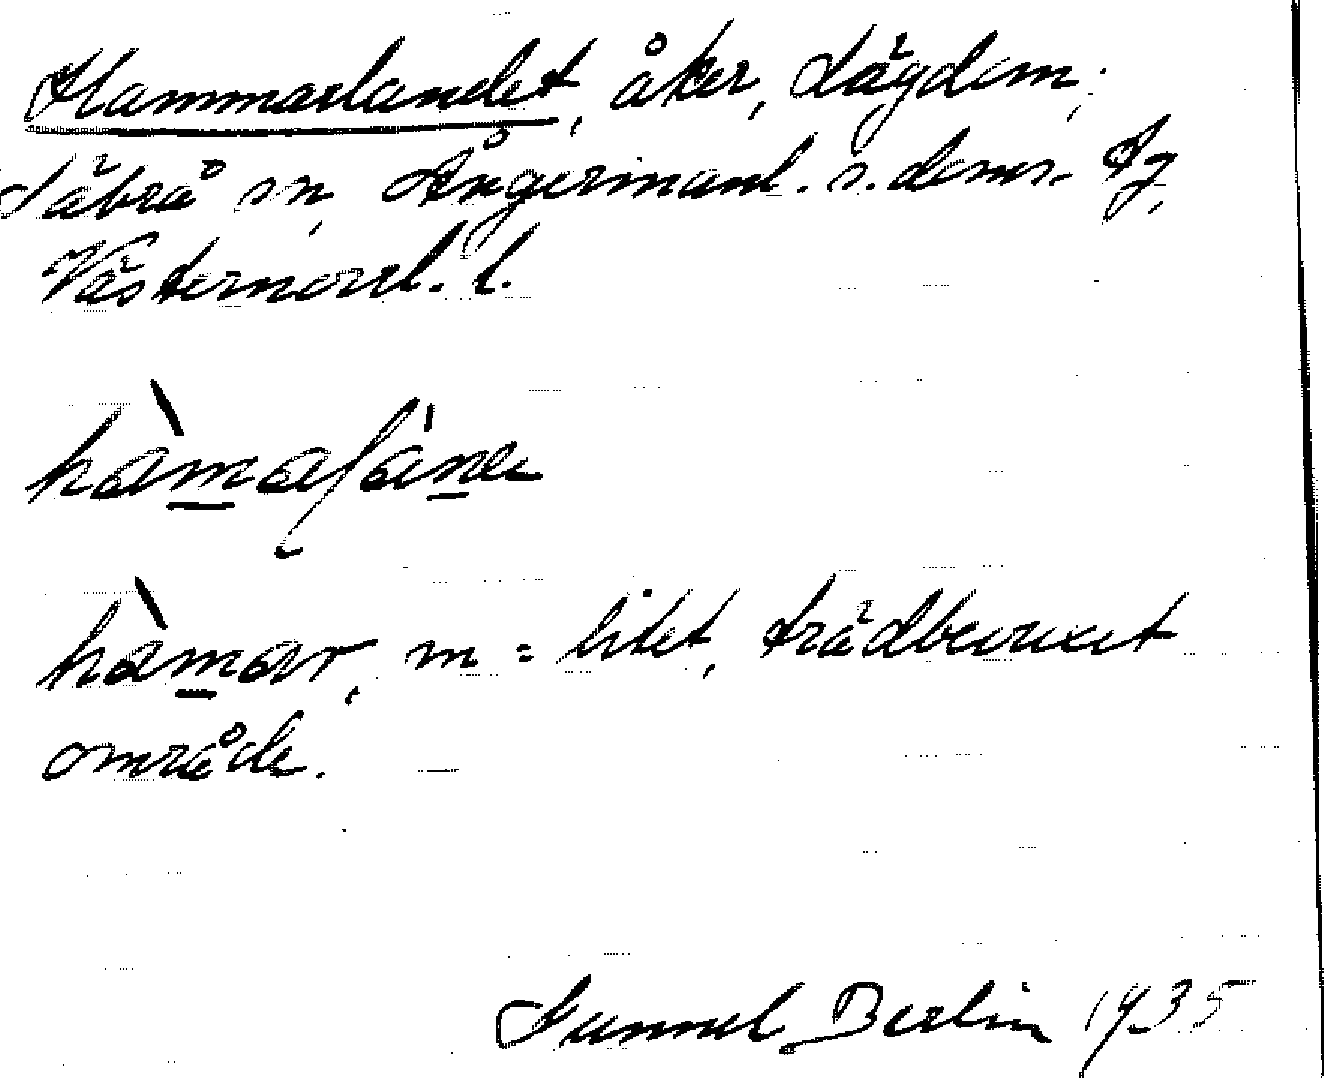 Hammarlandet, åker, Lägdom,
Säbrå sn, Ångermanl. s. doms. Fj,
Västernorrl. l.
hàmaláne
hàmar, m = litet, trädbevuxet
område.
Gunnel Berlin 1935